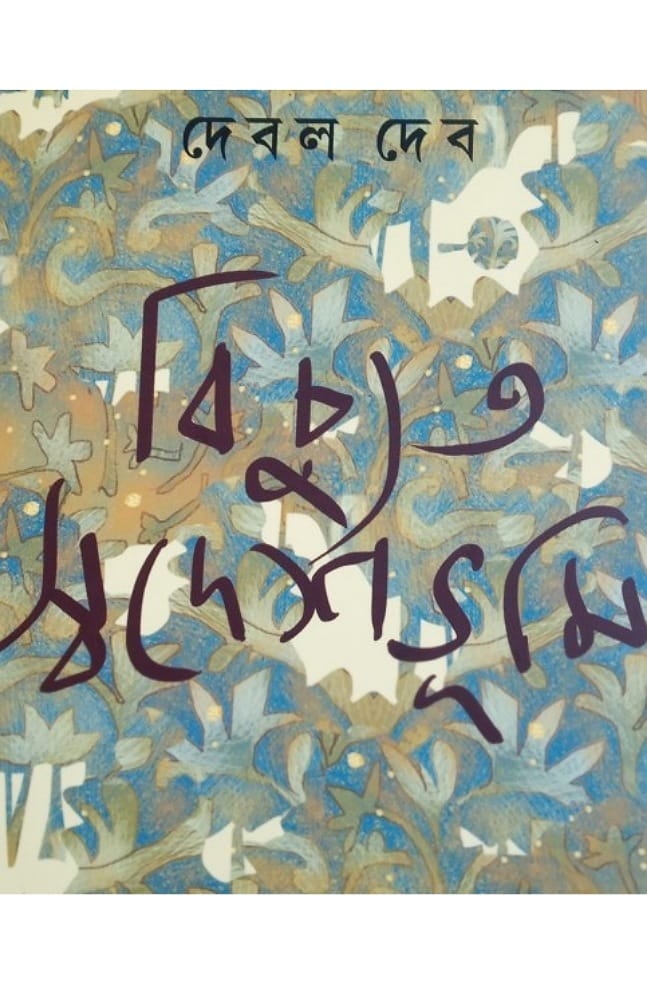 দেবল দেব
বিচ্যুত
স্বদেশভূমি